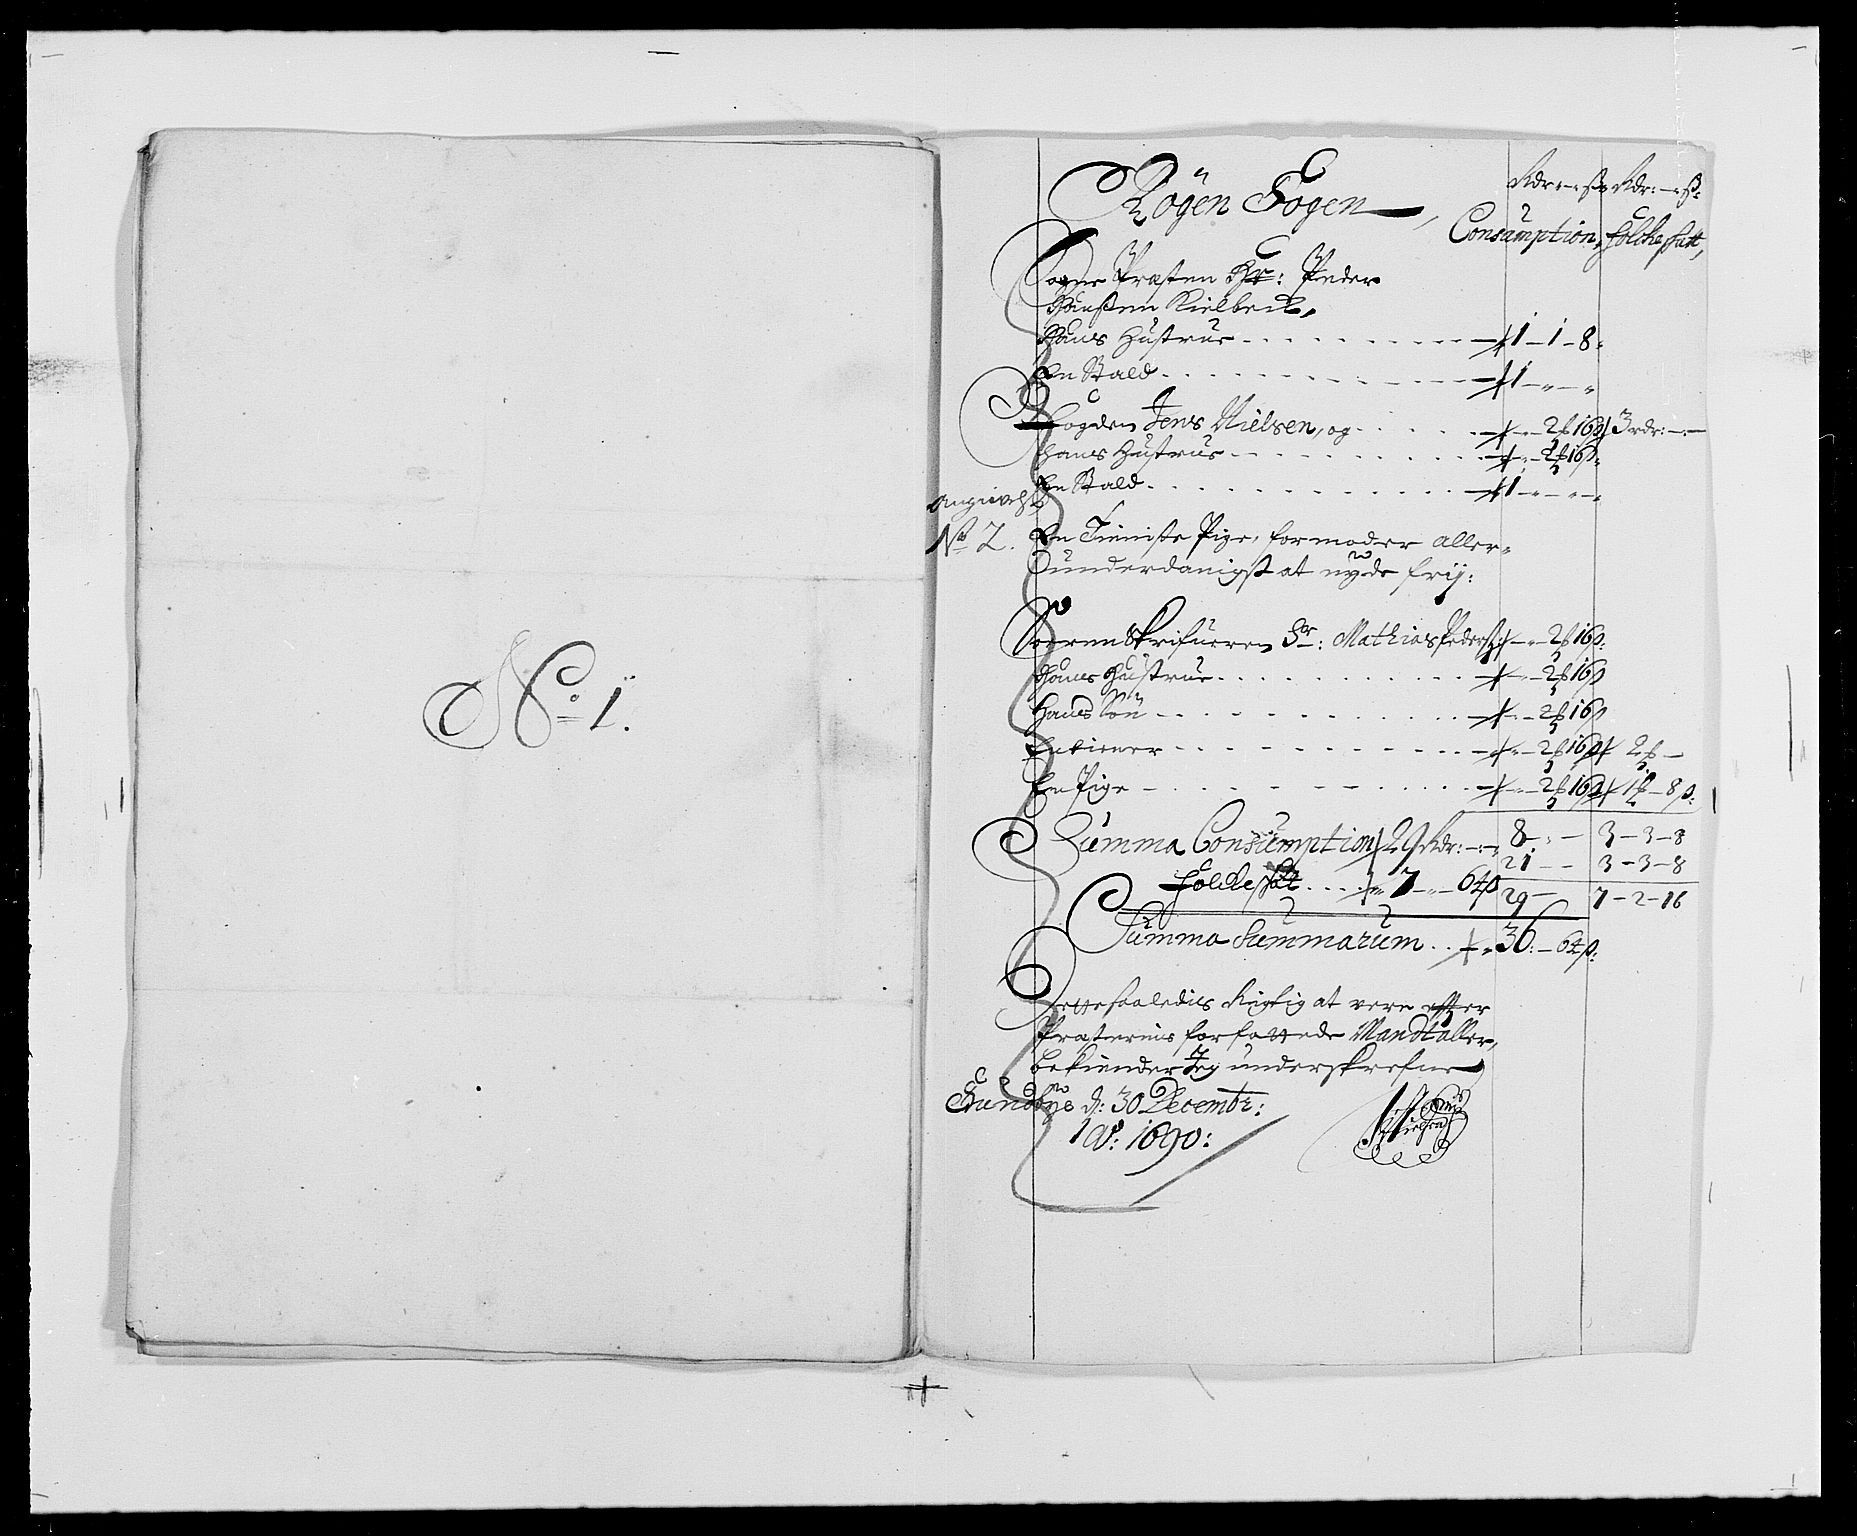 No 1.
Rögen Sogen
Rdr — ß Rdr: — ß
Consumption, folche skatt,
Sogne Præsten Hr: Peder
Hanßen Kielbeck,
Hans Hustrue - - - 1 - 1 - 8
En Stald - - - 1 - " - "
Fogden Jens Nielsen, og - - - " - 2 16ß 3 rdr: -
hans Hustrue - - - " - 2 16ß
En Stald - - - 1 - " - "
Angivelse
No 2. En Tieniste Pige, formoder aller-
underdanigst at nyde frij:
Soren Skrifueren Sr: Mathias Peders: - 2 16ß
Hans Hustrue - - - 2 16ß
Hans Sön - - - 2 16ß
En tiener - - - 2 16ß 2 -
En Pige - - - 2 16ß 1 - 8ß:
Summa Consumption 29 Rdr: - 8 - - 3 - 3 - 8
21 - - 3 - 3 - 8
folckeskat . . . 7 - 64ß 29 - 7 - 2 - 16
Summa Summarum . . 36: - 64ß:
Dette saaledis Rigtig at vere effter
Præsternis forfattede Mandtaller,
bekiender Jeg underskrefne
Sundbye d: 30 Decembr:
Ao: 1690:
Jens Nielsen